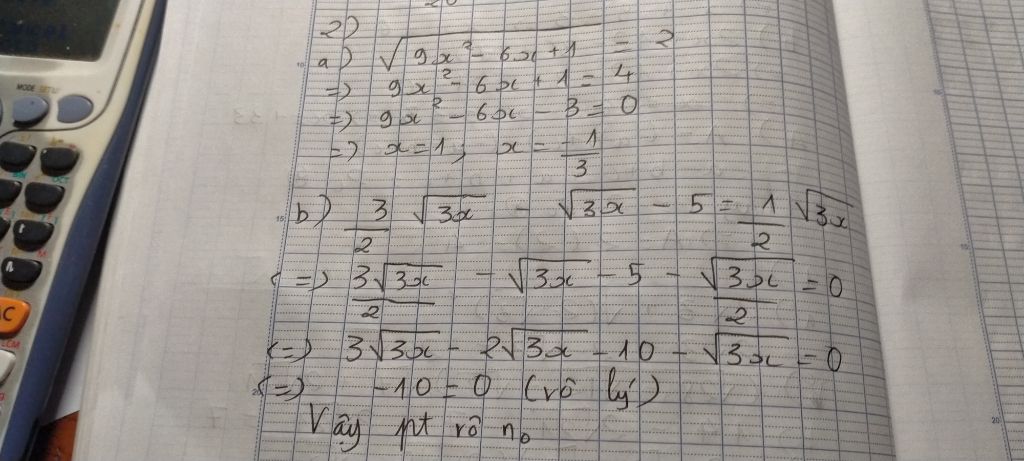 2)
a) √(9x² - 6x + 1) = 2
=) 9x² - 6x + 1 = 4
=) 9x² - 6x - 3 = 0
=) x = 1, x = -1/3
b) 3/2 √3x - √3x - 5 = 1/2 √3x
(=) 3√3x/2 - √3x - 5 - √3x/2 = 0
(=) 3√3x - 2√3x - 10 - √3x = 0
(=) -10 = 0 (vô lý)
Vậy pt vô no
MODE